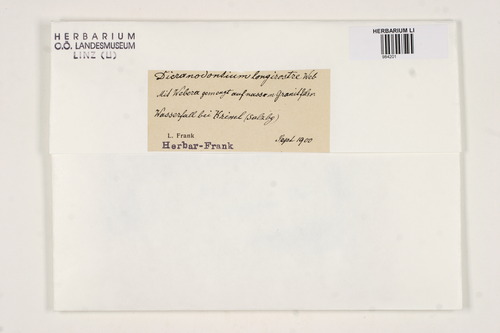 HERBARIUM
O.Ö. LANDESMUSEUM
LINZ (LI)
HERBARIUM LI
984201
Dicranodontium longirostre Web
Mit Webera gemengt auf nassem Granitfelsen
Wasserfall bei Kriml (Salzbg)
L. Frank
Herbar-Frank
Sept. 1900